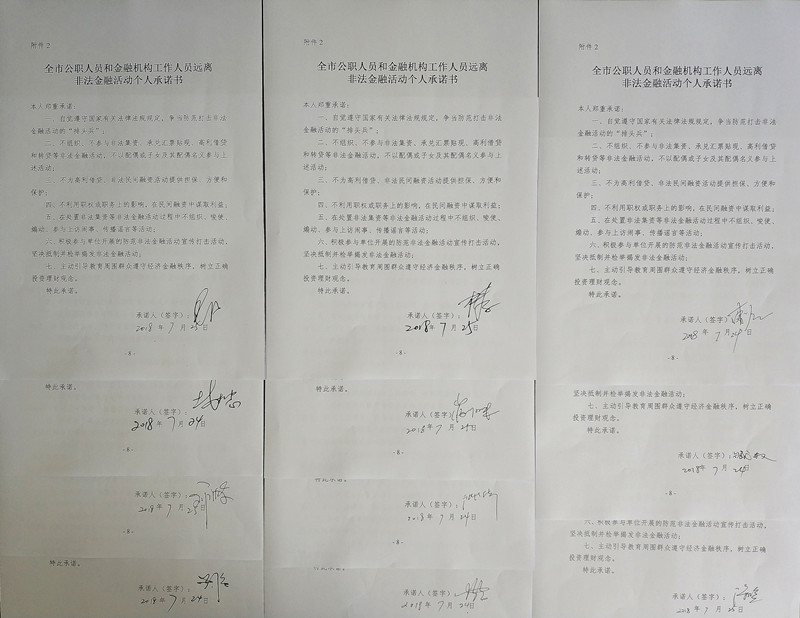 附件 2
全市公职人员和金融机构工作人员远离
非法金融活动个人承诺书
本人郑重承诺：
一、自觉遵守国家有关法律法规规定，争当防范打击非法
金融活动的“排头兵”；
二、不组织、不参与非法集资、承兑汇票贴现、高利借贷
和转贷等非法金融活动，不以配偶或子女及其配偶名义参与上
述活动；
三、不为高利借贷、非法民间融资活动提供担保、方便和
保护；
四、不利用职权或职务上的影响，在民间融资中谋取利益；
五、在处置非法集资等非法金融活动过程中不组织、唆使、
煽动、参与上访闹事、传播谣言等活动；
六、积极参与单位开展的防范非法金融活动宣传打击活动，
坚决抵制并检举揭发非法金融活动；
七、主动引导教育周围群众遵守经济金融秩序，树立正确
投资理财观念。
特此承诺。
承诺人（签字）：
2018 年 7 月 25 日
- 8 -
特此承诺。
承诺人（签字）：
2018 年 7 月 24 日
- 8 -
承诺人（签字）：
2018 年 7 月 25 日
- 8 -
特此承诺。
承诺人（签字）：
2018 年 7 月 24 日
附件 2
全市公职人员和金融机构工作人员远离
非法金融活动个人承诺书
本人郑重承诺：
一、自觉遵守国家有关法律法规规定，争当防范打击非法
金融活动的“排头兵”；
二、不组织、不参与非法集资、承兑汇票贴现、高利借贷
和转贷等非法金融活动，不以配偶或子女及其配偶名义参与上
述活动；
三、不为高利借贷、非法民间融资活动提供担保、方便和
保护；
四、不利用职权或职务上的影响，在民间融资中谋取利益；
五、在处置非法集资等非法金融活动过程中不组织、唆使、
煽动、参与上访闹事、传播谣言等活动；
六、积极参与单位开展的防范非法金融活动宣传打击活动，
坚决抵制并检举揭发非法金融活动；
七、主动引导教育周围群众遵守经济金融秩序，树立正确
投资理财观念。
特此承诺。
承诺人（签字）：
2018 年 7 月 25 日
- 8 -
特此承诺。
承诺人（签字）
2018 年 7 月 25 日
- 8 -
特此承诺。
承诺人（签字）：
2018 年 7 月 24 日
- 8 -
特此承诺。
承诺人（签字）：
2018 年 7 月 24 日
附件 2
全市公职人员和金融机构工作人员远离
非法金融活动个人承诺书
本人郑重承诺：
一、自觉遵守国家有关法律法规规定，争当防范打击非法
金融活动的“排头兵”；
二、不组织、不参与非法集资、承兑汇票贴现、高利借贷
和转贷等非法金融活动，不以配偶或子女及其配偶名义参与上
述活动；
三、不为高利借贷、非法民间融资活动提供担保、方便和
保护；
四、不利用职权或职务上的影响，在民间融资中谋取利益；
五、在处置非法集资等非法金融活动过程中不组织、唆使、
煽动、参与上访闹事、传播谣言等活动；
六、积极参与单位开展的防范非法金融活动宣传打击活动，
坚决抵制并检举揭发非法金融活动；
七、主动引导教育周围群众遵守经济金融秩序，树立正确
投资理财观念。
特此承诺。
承诺人（签字）
2018 年 7 月 24 日
- 8 -
坚决抵制并检举揭发非法金融活动；
七、主动引导教育周围群众遵守经济金融秩序，树立正确
投资理财观念。
特此承诺。
承诺人（签字）：
2018 年 7 月 24 日
- 8 -
六、积极参与单位开展的防范非法金融活动宣传打击活动，
坚决抵制并检举揭发非法金融活动；
七、主动引导教育周围群众遵守经济金融秩序，树立正确
投资理财观念。
特此承诺。
承诺人（签字）：
2018 年 7 月 25 日